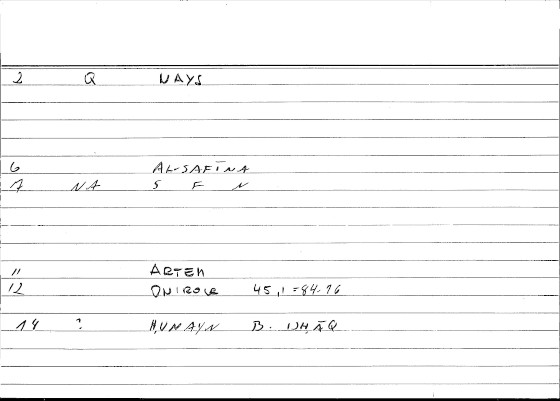 2 Q NAYS
6 AL-SAFĪNA
7 NA S F N
11 ARTEM
12 ONIROCR 45,1=84.16
14 ? ḤUNAYN B. ISḤĀQ